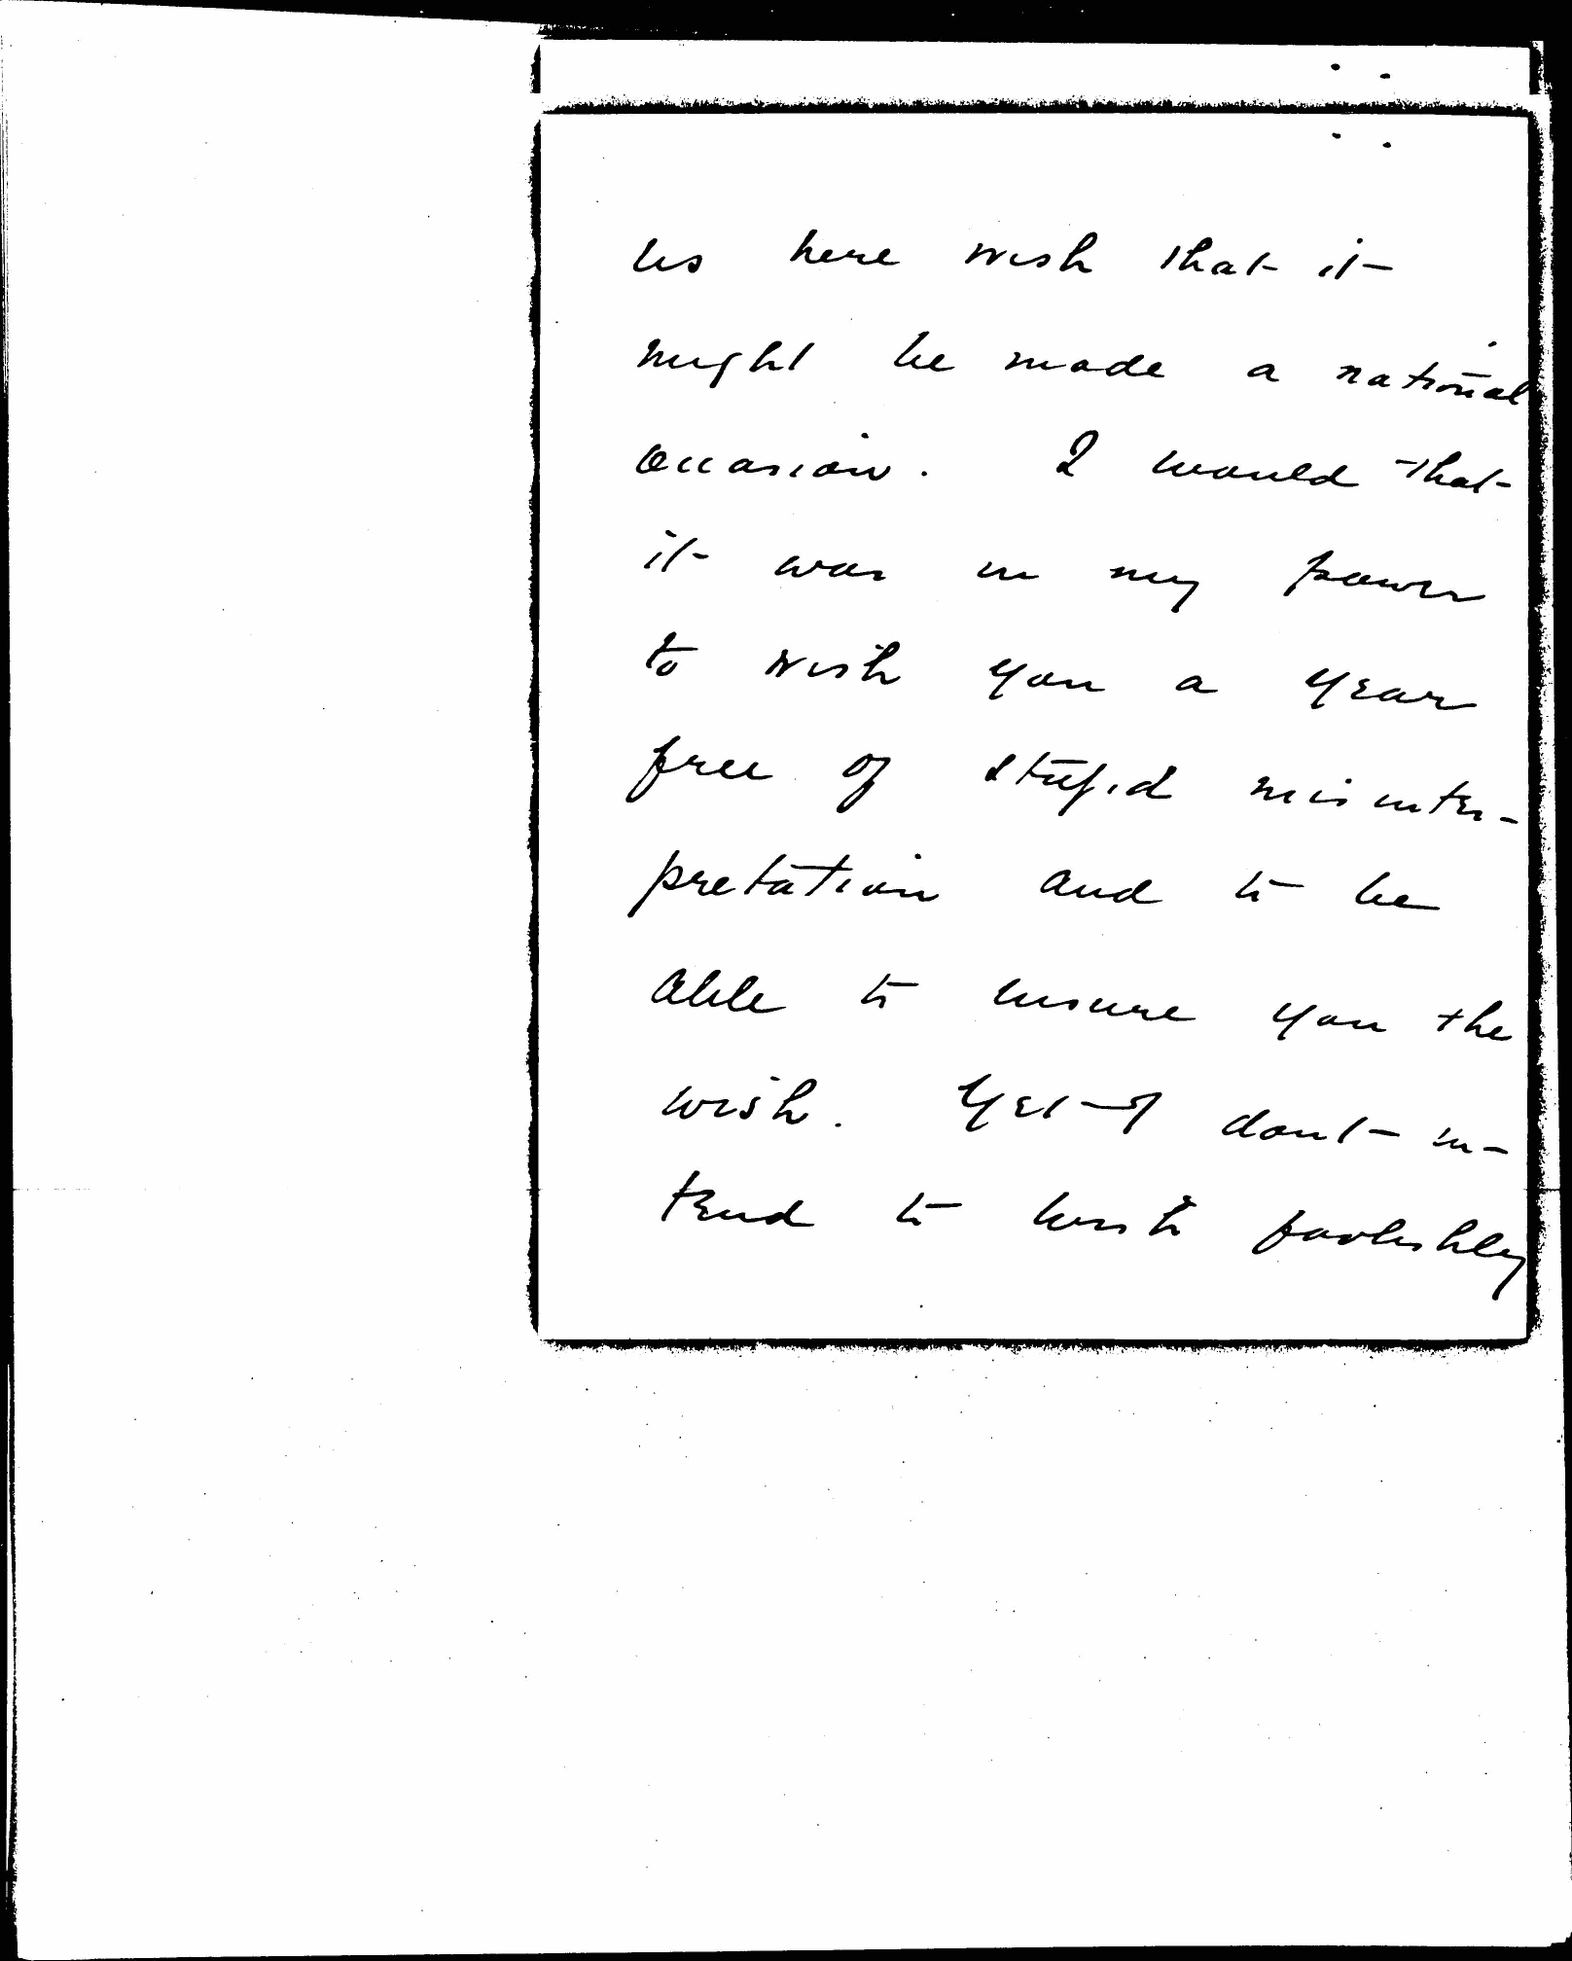 us here wish that it
might be made a national
occasion. I would that
it was in my power
to wish you a year
free of stupid misinter-
pretation and to be
able to insure you the
wish. Yet I dont in-
tend to wish foolishly